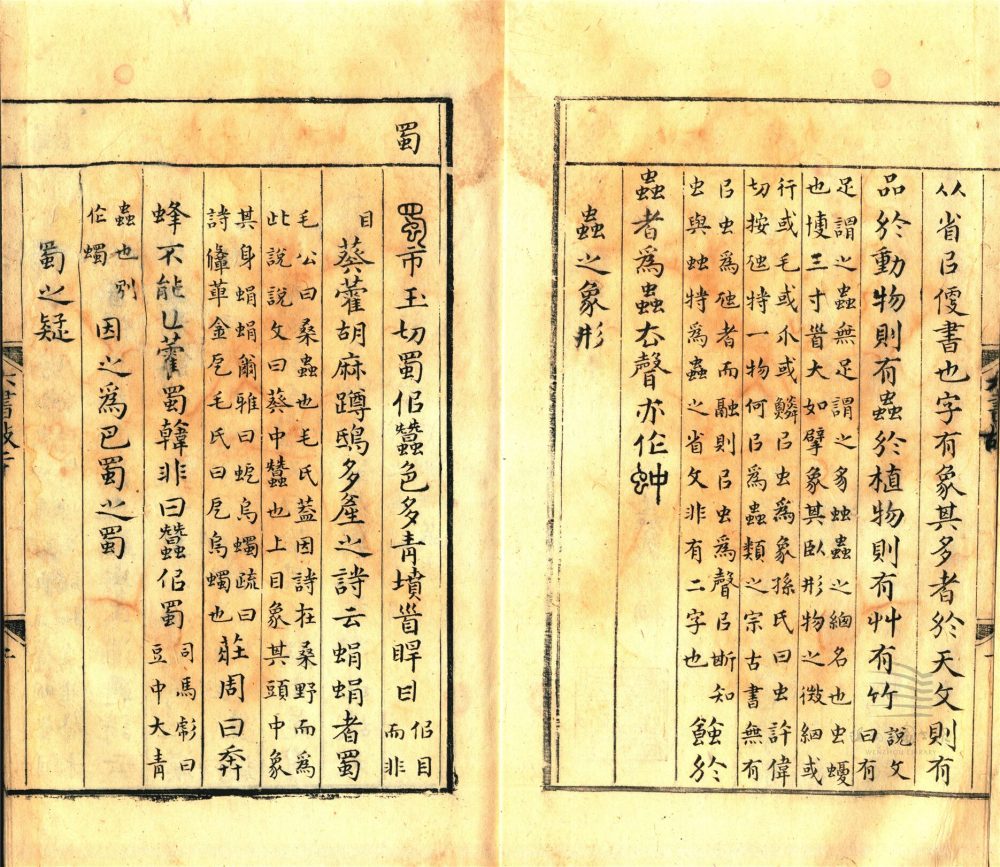 从省㠯便書也字有象其多者於天文則有
品於動物則有蟲於植物則有艸有竹說文
曰有
足謂之蟲無足謂之豸䖵蟲之緫名也虫蝮
也博三寸首大如擘象其臥形物之微細或
行或毛或介或鱗㠯虫爲象孫氏曰虫許偉
切按虺特一物何㠯爲蟲類之宗古書無有
㠯虫爲虺者而融則㠯虫爲聲㠯斯知
虫與䖵特爲蟲之省文非有二字也
於
蟲者爲蟲厺聲亦作䖵
蟲之象形
蜀
蜀市玉切蜀佀蠶色多青墳首睅目佀目
而非
目葵藿胡麻蹲鴟多產之詩云蜎蜎者蜀
毛公曰桑蟲也毛氏蓋因詩在桑野而爲
此說說文曰葵中蠶也上目象其頭中象
其身蜎蜎爾雅曰蚅烏蠋疏曰
詩鞗革金厄毛氏曰厄烏蠋也
莊周曰奔
蜂不能匕藿蜀韓非曰蠶佀蜀司馬彪曰
豆中大青
蟲也別
作蠋
因之爲巴蜀之蜀
蜀之疑
六書故